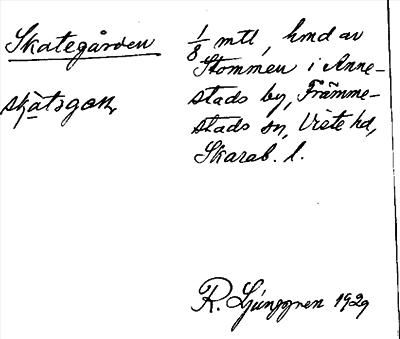 Skategården
skatsgar
1/8 mtl, hmd av
Stommen i Anne-
stads by, Främme-
stads sn, Viste hd,
Skarab. l.
R. Ljunggren 1929